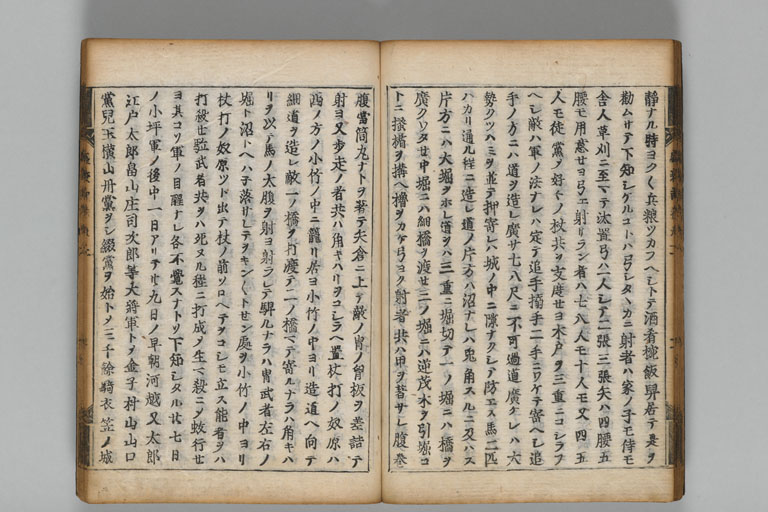 静ナル時ヨク〱兵粮ツカフヘシトテ酒肴椀飯舁居テ是ヲ
勸ムサテ下知シケルコトハ弓シタヽカニ射者ハ家ノ子モ侍モ
舎人草刈ニ至マテ汰置弓ハ一人シテ二張三張矢ハ四腰五
腰モ用意セヨ弓エ射ラシ者ハ七八人モ十人モ又四五
人モ徒黨ノ好ク〱ノ杖共ヲ支度セヨ木戸ヲ三重ニコシラフ
ヘシ敵ハ軍ノ法ナレハ定テ追手搦手二手ニワケテ寄ヘシ追
手ノ方ニハ道ヲ造レ廣サ七八尺ニ不可過道廣ケレハ大
勢クツハミヲ並テ押寄レハ城ノ中ニ隙ナクシテ防エス馬二匹
ハカリ通ル程ニ造レ道ノ片方ハ沼ナレハ兎角スルニ及ハス
片方ニハ大堀ヲホレ道ヲハ三重ニ堀切テ一ノ堀ニハ橋ヲ
廣クワタセ中堀ニハ細橋ヲ渡セ三ノ堀ニハ逆茂木ヲ引堀コ
トニ掻楯ヲ構ヘ櫓ヲカケ弓ヨク射者共ハ甲ヲ著サレ腹巻
腹當筒丸ナトヲ著テ矢倉ニ上テ敵ノ冑ノ胷板ヲ差詰テ
射ヨ又歩走ノ者共ハ角キハリヲコシラヘ置杖打ノ奴原ハ
西ノ方ノ小竹ノ中ニ籠リ居ヨ小竹ノ中ヨリ造道ヘ向テ
細道ヲ造レ敵一ノ橋ヲ打渡テ二ノ橋マテ寄ルナラハ角キハ
リヲ以テ馬ノ太腹ヲ射ヨ射ラレテ駻ルナラハ冑武者左右ノ
堀ト沼トヘハ子落サレテヲキン〱トセン處ヲ小竹ノ中ヨリ
杖打ノ奴原ツト出テ杖ノ前ソロヘテヲコシモ立ス能者ヲハ
打殺セ弱武者共ヲハ死ヌル程ニ打成ノ生マ殺ニメ蚊行セ
ヨ其コソ軍ノ目醒ナレ各不覺スナトソ下知シタル廿七日
ノ小坪軍ノ後中一日アリテ廿九日ノ早朝河越又太郎
江戸太郎畠山庄司次郎等大將軍トメ金子村山山口
黨兒玉横山丹黨ヲシ綴黨ヲ始トメ三千餘騎衣笠ノ城